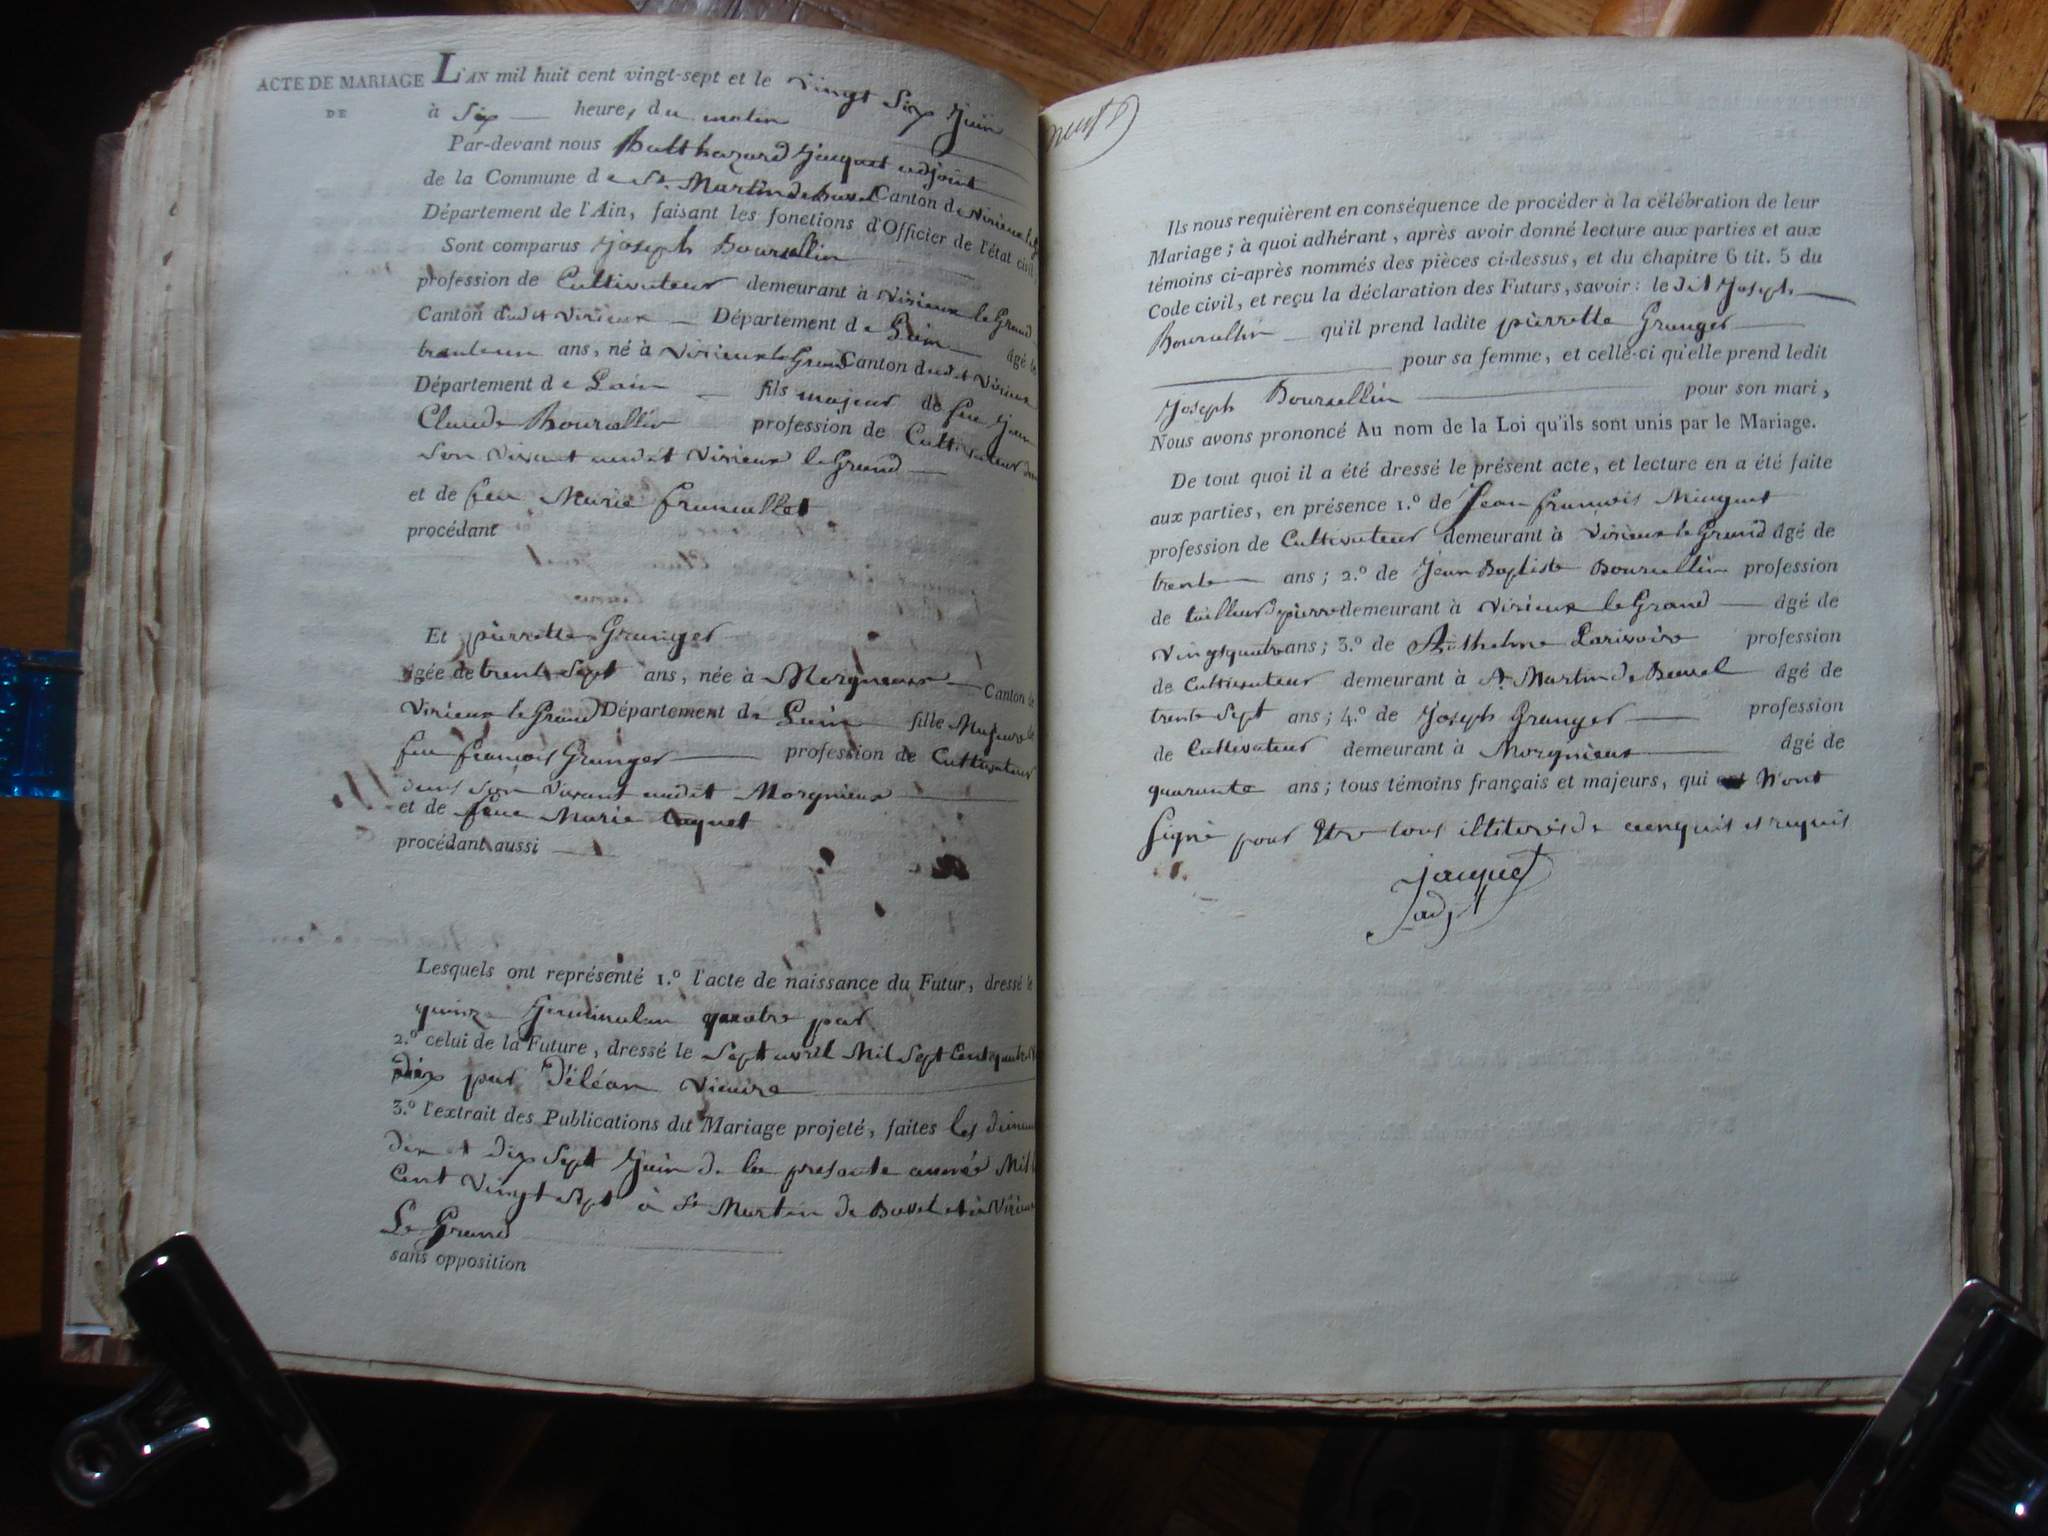 ACTE DE MARIAGE
DE
L'AN mil huit cent vingt-sept et le vingt Six Juin
à Six heures du matin
Par-devant nous Balthazard Jacquet adjoint
de la Commune de St. Martin de Bavel Canton de Virieux le g
Département de l'Ain, faisant les fonctions d'Officier de l'état civil
Sont comparus Joseph Boursellin
profession de Cultivateur demeurant à Virieux le Grand
Canton dudit Virieux Département de Lain âgé de
trente un ans, né à Virieux le Grand Canton dudit Virieux
Département de Lain fils majeur de feu Jean
Claude Boursellin profession de Cultivateur
Son vivant audit Virieux le Grand
et de feu Marie
procédant
Et pierrette Granger
âgée de trente Sept ans, née à Morgnieux Canton de
Virieux le Grand Département de Lain fille Majeure de
feu francois Granger profession de Cultivateur
dans son vivant audit Morgnieux
et de feue Marie
procédant aussi
Lesquels ont représenté 1.º l'acte de naissance du Futur, dressé le
quinze Germinal an quatre par
2.º celui de la Future, dressé le Sept avril Mil Sept Cent quatre
dix par Déléan vicaire
3.º l'extrait des Publications du Mariage projeté, faites les
dix et dix Sept Juin de la presente année Mil
Cent Vingt Sept à St Martin de Bavel et à Virieux
Le Grand
sans opposition
Ils nous requièrent en conséquence de procéder à la célébration de leur
Mariage; à quoi adhérant, après avoir donné lecture aux parties et aux
témoins ci-après nommés des pièces ci-dessus, et du chapitre 6 tit. 5 du
Code civil, et reçu la déclaration des Futurs, savoir: le dit Joseph
Boursellin qu'il prend ladite pierrette Granger
pour sa femme, et celle-ci qu'elle prend ledit
Joseph Boursellin pour son mari,
Nous avons prononcé Au nom de la Loi qu'ils sont unis par le Mariage.
De tout quoi il a été dressé le présent acte, et lecture en a été faite
aux parties, en présence 1.º de Jean francois
profession de Cultivateur demeurant à Virieux le Grand âgé de
trente ans; 2.º de Jean Baptiste Boursellin profession
de tailleur de pierre demeurant à Virieux le Grand âgé de
vingt quatre ans; 3.º de Anthelme Larivoire profession
de Cultivateur demeurant à St Martin de Bavel âgé de
trente Sept ans; 4.º de Joseph Granger profession
de Cultivateur demeurant à Morgnieux âgé de
quarante ans; tous témoins français et majeurs, qui N'ont
Signé pour Etre tous illiterés de ce enquis et requis
Jacquet
adjt